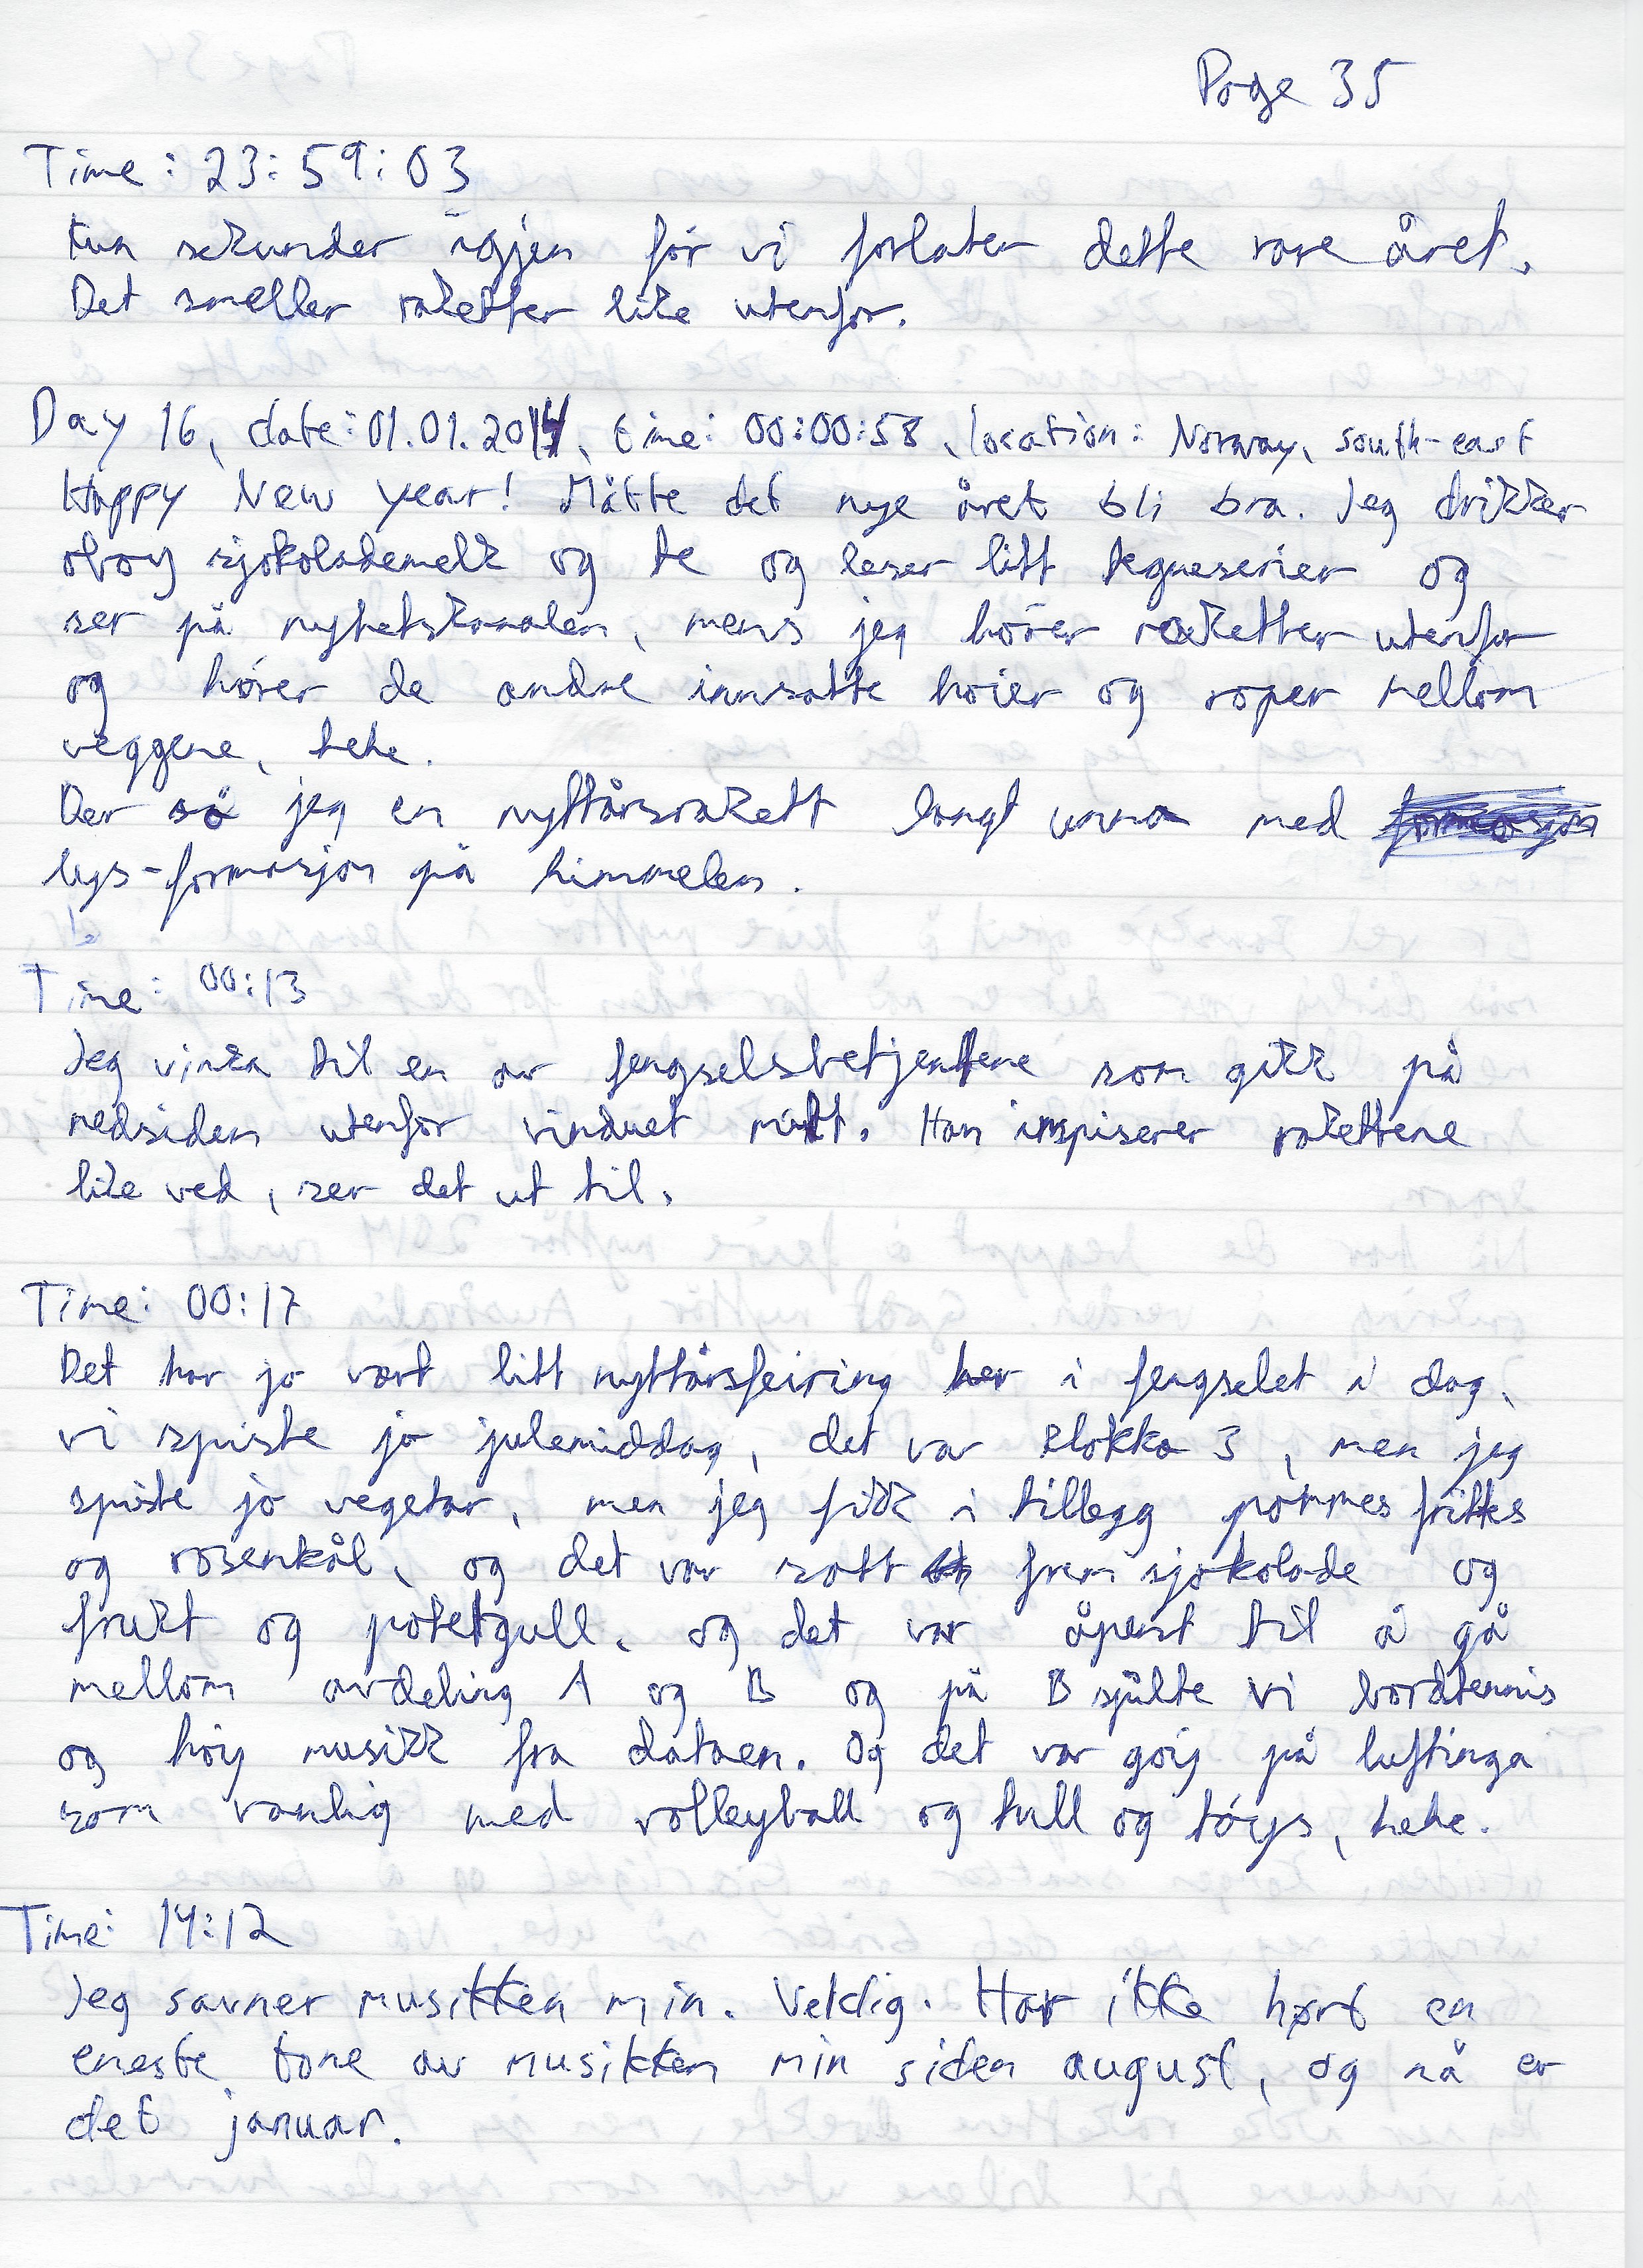 Page 35
Time: 23:59:03
Kun sekunder igjen før vi forlater dette rare året.
Det smeller raketter like utenfor.
Day 16, date: 01.01.2014, time: 00:00:58, location: Norway, south-east
Happy New Year! Måtte det nye året bli bra. Jeg drikker
oboy sjokolademelk og te og leser litt tegneserier og
ser på nyhetskanalen, mens jeg hører raketter utenfor
og hører de andre innsatte hoier og roper mellom
veggene, hehe.
Der så jeg en nyttårsrakett langt unna med formasjon
lys-formasjon på himmelen.
Time: 00:13
Jeg vinka til en av fengselsbetjentene som gikk på
nedsiden utenfor vinduet mitt. Han inspiserer rakettene
like ved, ser det ut til.
Time: 00:17
Det har jo vært litt nyttårsfeiring her i fengselet i dag,
vi spiste jo julemiddag, det var klokka 3, men jeg
spiste jo vegetar, men jeg fikk i tillegg pommes frittes
og rosenkål, og det var satt frem sjokolade og
frukt og potetgull, og det var åpent til å gå
mellom avdeling A og B og på B spilte vi bordtennis
og høy musikk fra dataen. Og det var gøy på luftinga
som vanlig med volleyball og tull og tøys, hehe.
Time: 14:12
Jeg savner musikken min. Veldig. Har ikke hørt en
eneste tone av musikken min siden august, og nå er
det januar.